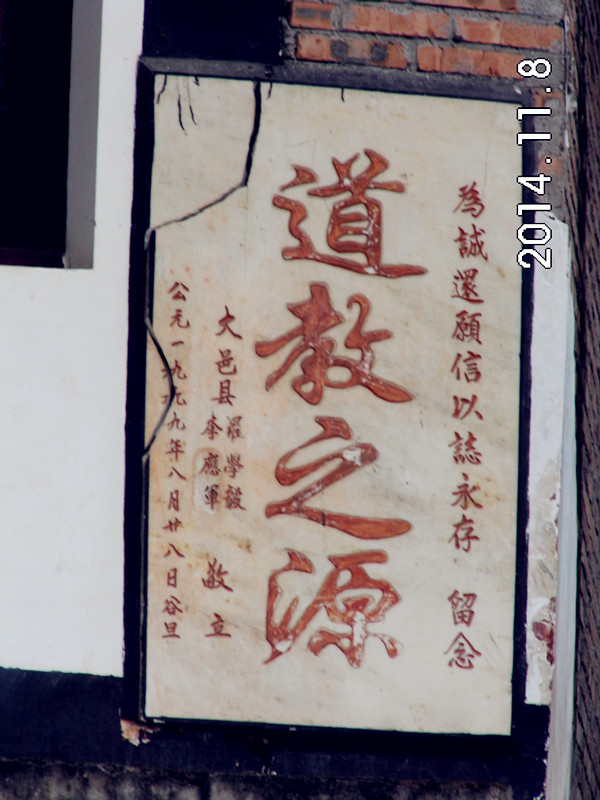 為誠還願信以誌永存 留念
道教之源
大邑县 羅學毅
李應軍 敬立
公元一九九九年八月廿八日谷旦
2014.11.8